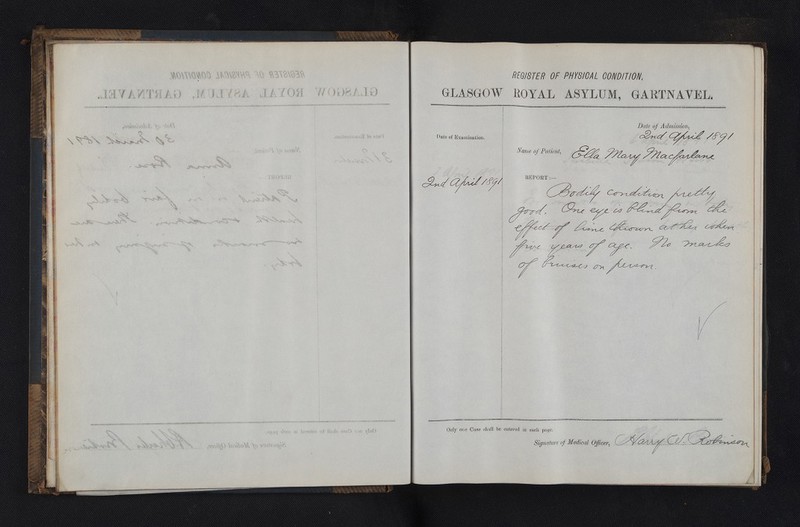 REGISTER OF PHYSICAL CONDITION.
GLASGOW ROYAL ASYLUM, GARTNAVEL.
Date of Admission,
30 March 1891
Date of Examination.
Name of Patient,
Anna
REPORT:—
Patient is in fair bodily
health
body
Only one Case shall be entered in each page.
Signature of Medical Officer,
REGISTER OF PHYSICAL CONDITION.
GLASGOW ROYAL ASYLUM, GARTNAVEL.
Date of Admission,
2nd April 1891
Date of Examination.
Name of Patient, Ella Mary Macfarlane
2nd April 1891
REPORT:—
Bodily condition pretty
good. One eye is blind from the
effect of lime thrown at her when
five years of age. No marks
of bruises on person.
Only one Case shall be entered in each page.
Signature of Medical Officer, Harry W. Robinson